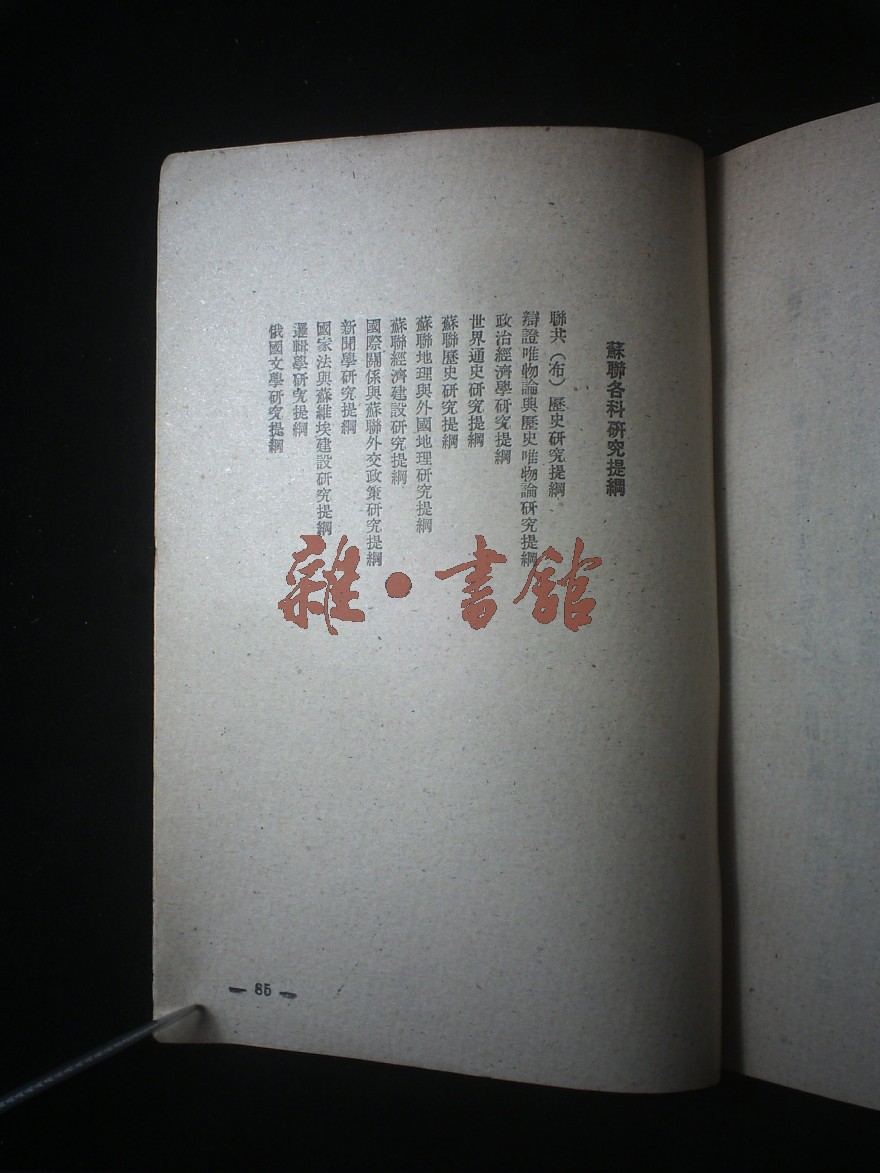 蘇聯各科硏究提綱
聯共（布）歷史研究提綱
辯證唯物論與歷史唯物論研究提綱
政治經濟學研究提綱
世界通史研究提綱
蘇聯歷史研究提綱
蘇聯地理與外國地理研究提綱
蘇聯經濟建設研究提綱
國際關係與蘇聯外交政策研究提綱
新聞學研究提綱
國家法與蘇維埃建設研究提綱
邏輯學研究提綱
俄國文學研究提綱
雜·書館
— 65 —